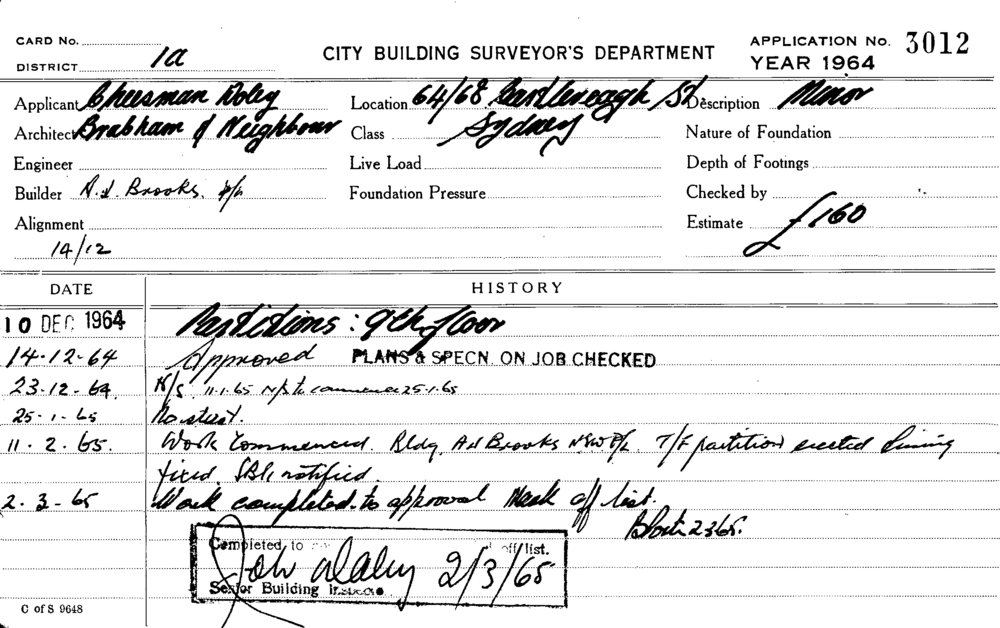 CARD No.
DISTRICT 1a
CITY BUILDING SURVEYOR'S DEPARTMENT
APPLICATION No. 3012
YEAR 1964
Applicant Cheesman Doley
Location 64/68 Castlereagh St
Description Minor
Architect Brabham & Neighbour
Class Sydney
Nature of Foundation
Engineer
Live Load
Depth of Footings
Builder A.d. Brooks. P/L
Foundation Pressure
Checked by
Alignment
Estimate £160
14/12
DATE
HISTORY
10 DEC 1964 Partitions : 9th floor
14-12-64 Approved PLANS & SPECN. ON JOB CHECKED
23-12-64 N/S 11-1-65 N/S to commence 25-1-65
25-1-65 No start.
11-2-65. Work Commenced. Bldg. Ad Brooks NSW P/L. T/F partition erected lining
fixed. notified.
2-3-65 Work completed to approval Mark off list.
2365.
Completed to off list.
Daley 2/3/65
Senior Building Inspector
C of S 9648